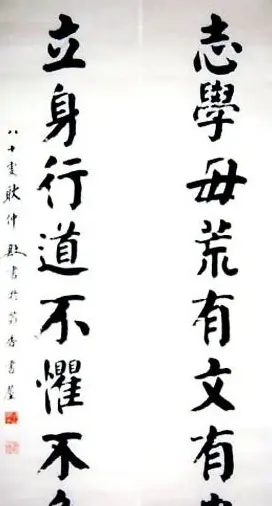 志學毋荒有文有
立身行道不懼不
八十叟耿仲敭書於